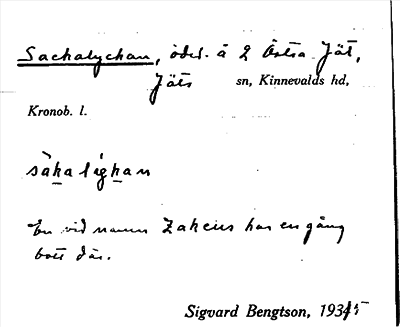 Sackalyckan, ödel. å 2 Östra Jät,
Jäts sn, Kinnevalds hd,
Kronob. l.
sàkalýkan
En vid namn Zakeus har en gång
bott där.
Sigvard Bengtson, 1934